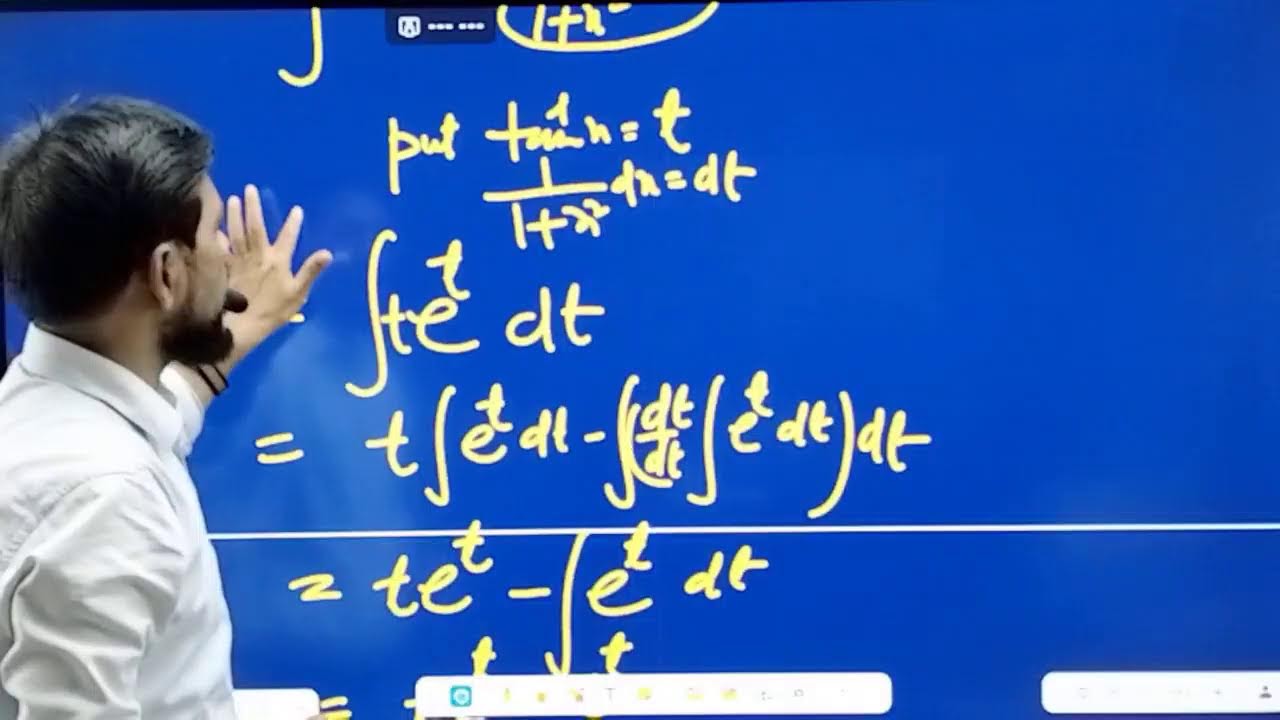 ∫ 1+x²
put tan⁻¹x = t
1/(1+x²) dx = dt
= ∫ te^t dt
= t ∫ e^t dt - ∫(dt/dt ∫ e^t dt) dt
= te^t - ∫ e^t dt
=